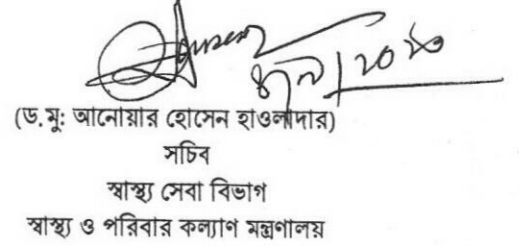 (ড.মু: আনোয়ার হোসেন হাওলাদার)
সচিব
স্বাস্থ্য সেবা বিভাগ
স্বাস্থ্য ও পরিবার কল্যাণ মন্ত্রণালয়